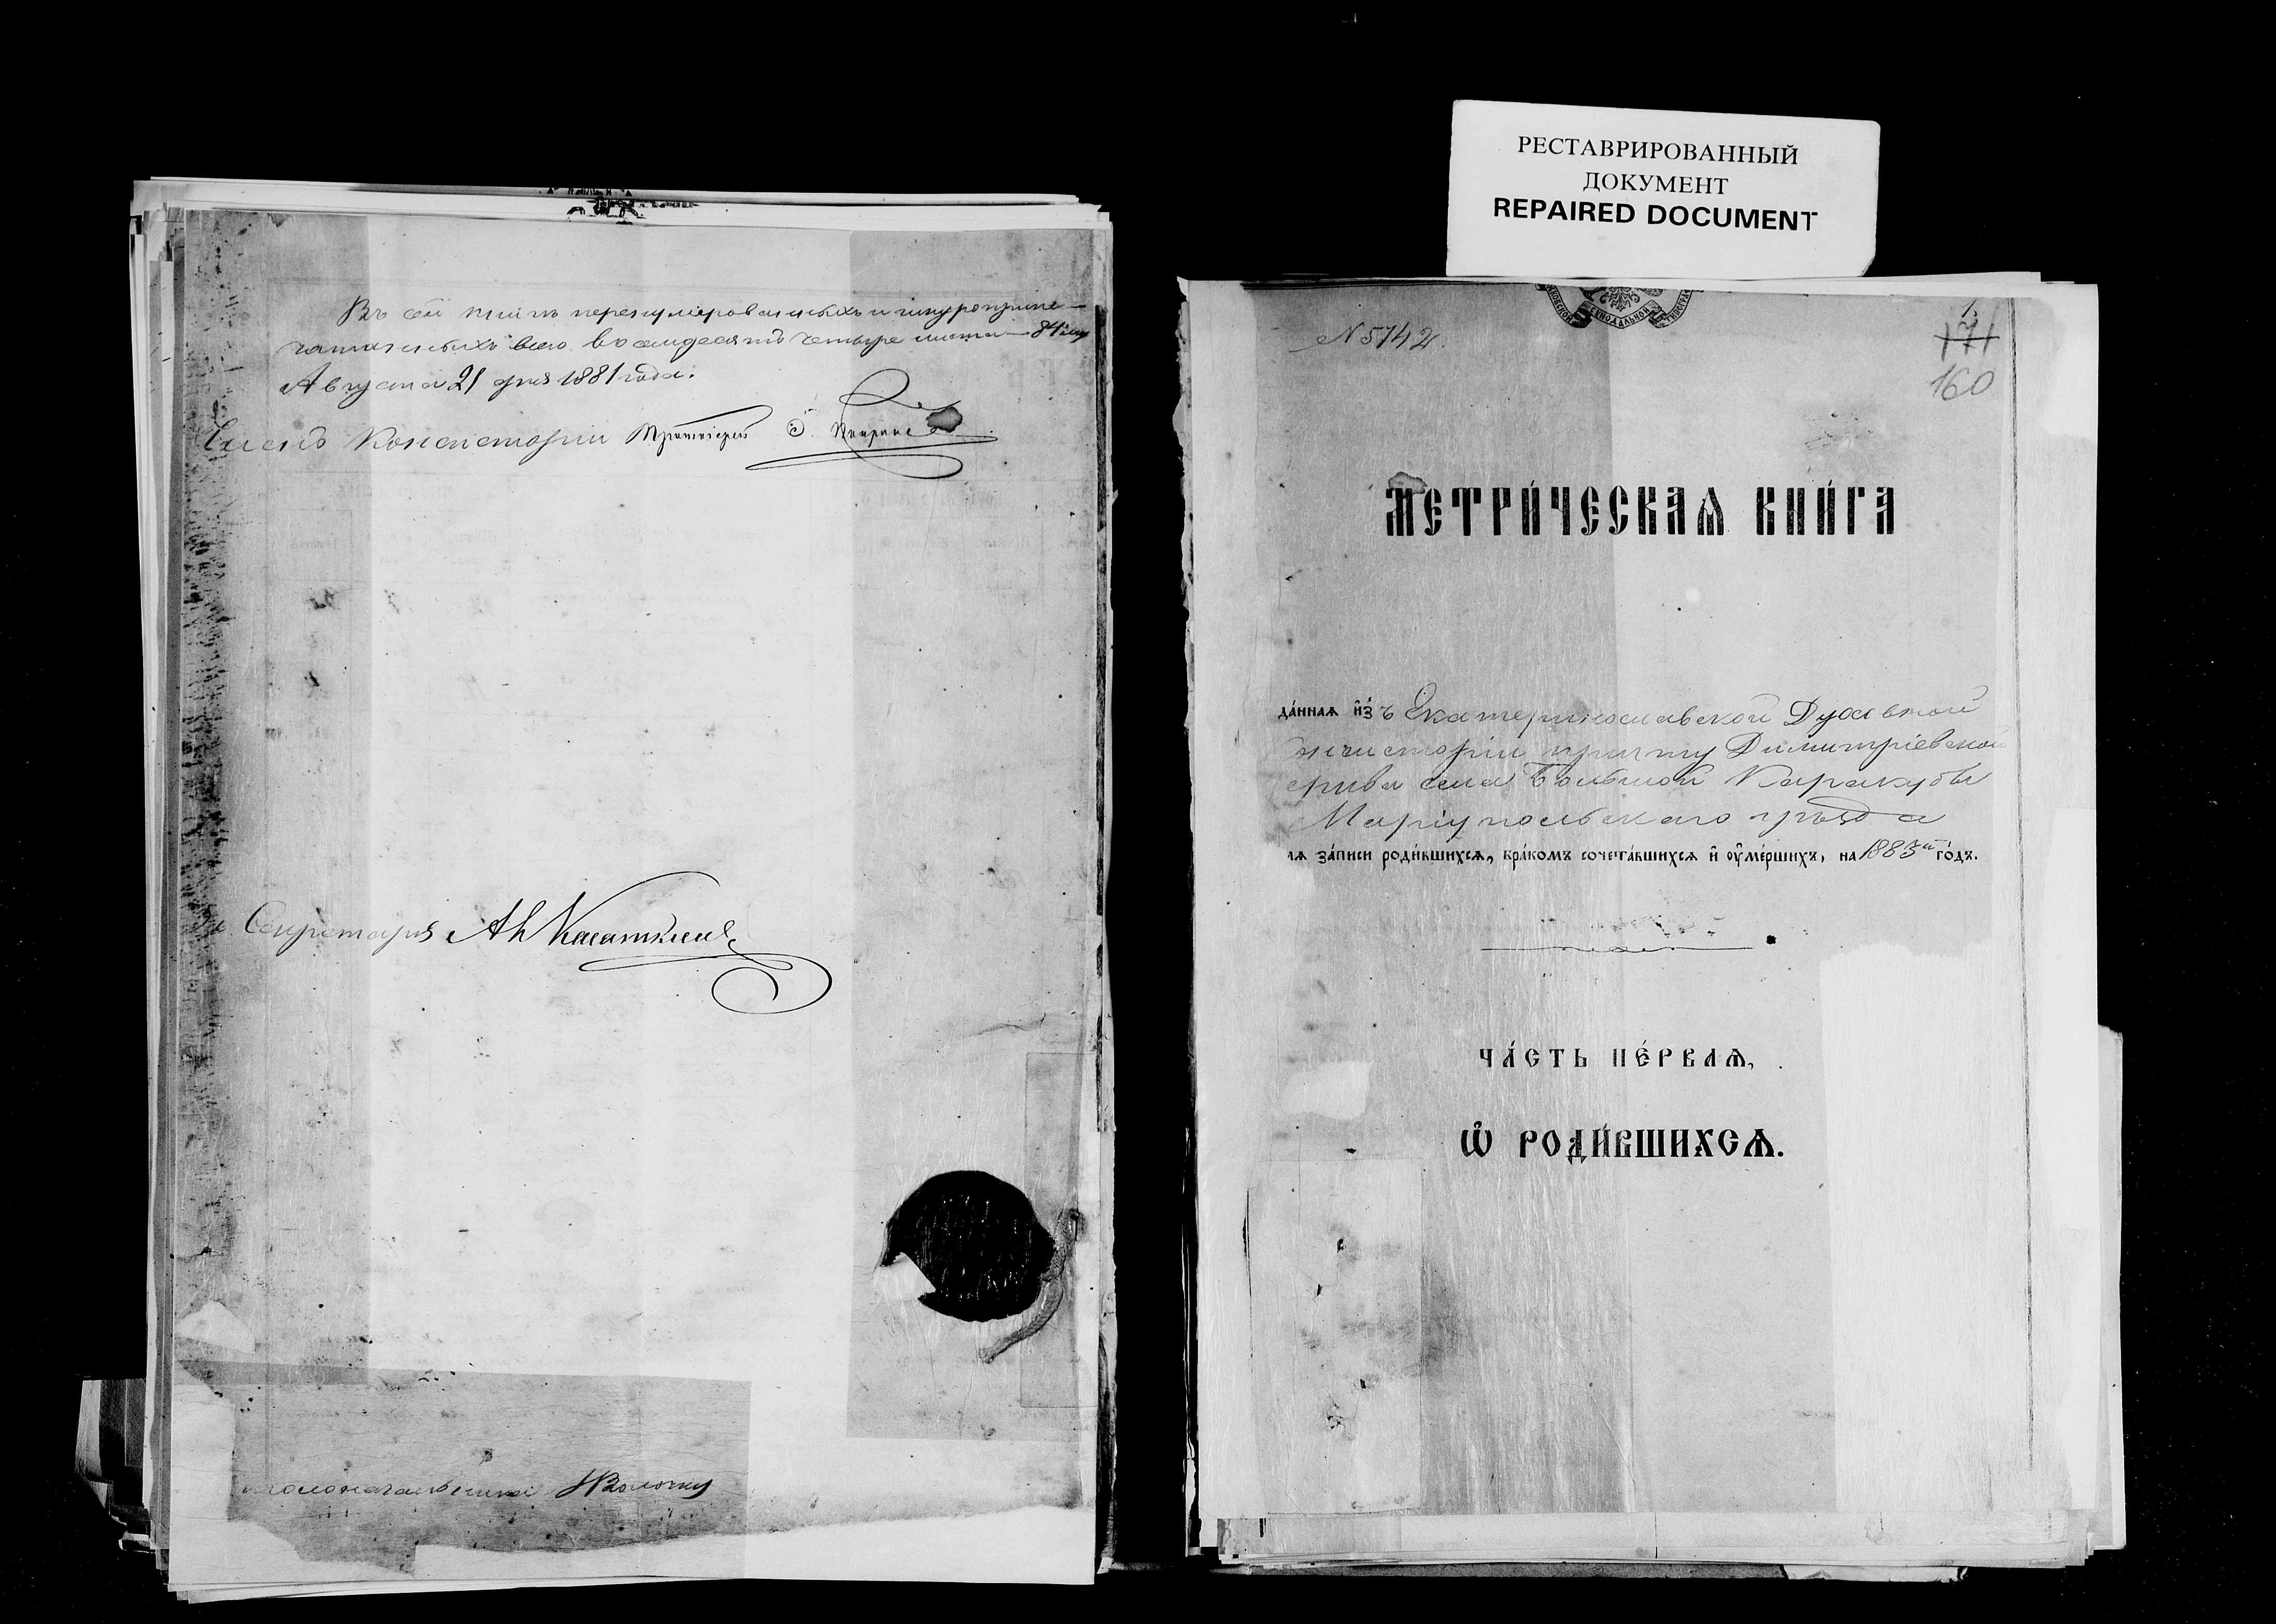 Въ сей книгѣ перенумерованныхъ и шнуроприпе-
чатанныхъ всего восемдесятъ четыре листа — 84
Августа 21 дня 1881 года.
Членъ Консисторіи Протоіерей
Секретаря
столоначальника
РЕСТАВРИРОВАННЫЙ
ДОКУМЕНТ
REPAIRED DOCUMENT
СѴНОДАЛЬНОЙ
N 5742.
1.
171
160
МЕТРИ́ЧЕСКАѦ КНИ́ГА
да́ннаѧ и҆́зъ Екатеринославской Духовной
нсисторіи причту Димитріевской
еркви села Большой Каракубы
Маріупольскаго уѣзда
лѧ за́писи роди́вшихсѧ, бра́комъ сочета́вшихсѧ и҆ ᲂу҆ме́ршихъ, на 1883й го́дъ.
ЧА́СТЬ ПЕ́РВАѦ,
Ѽ РОДИ́ВШИХСѦ.